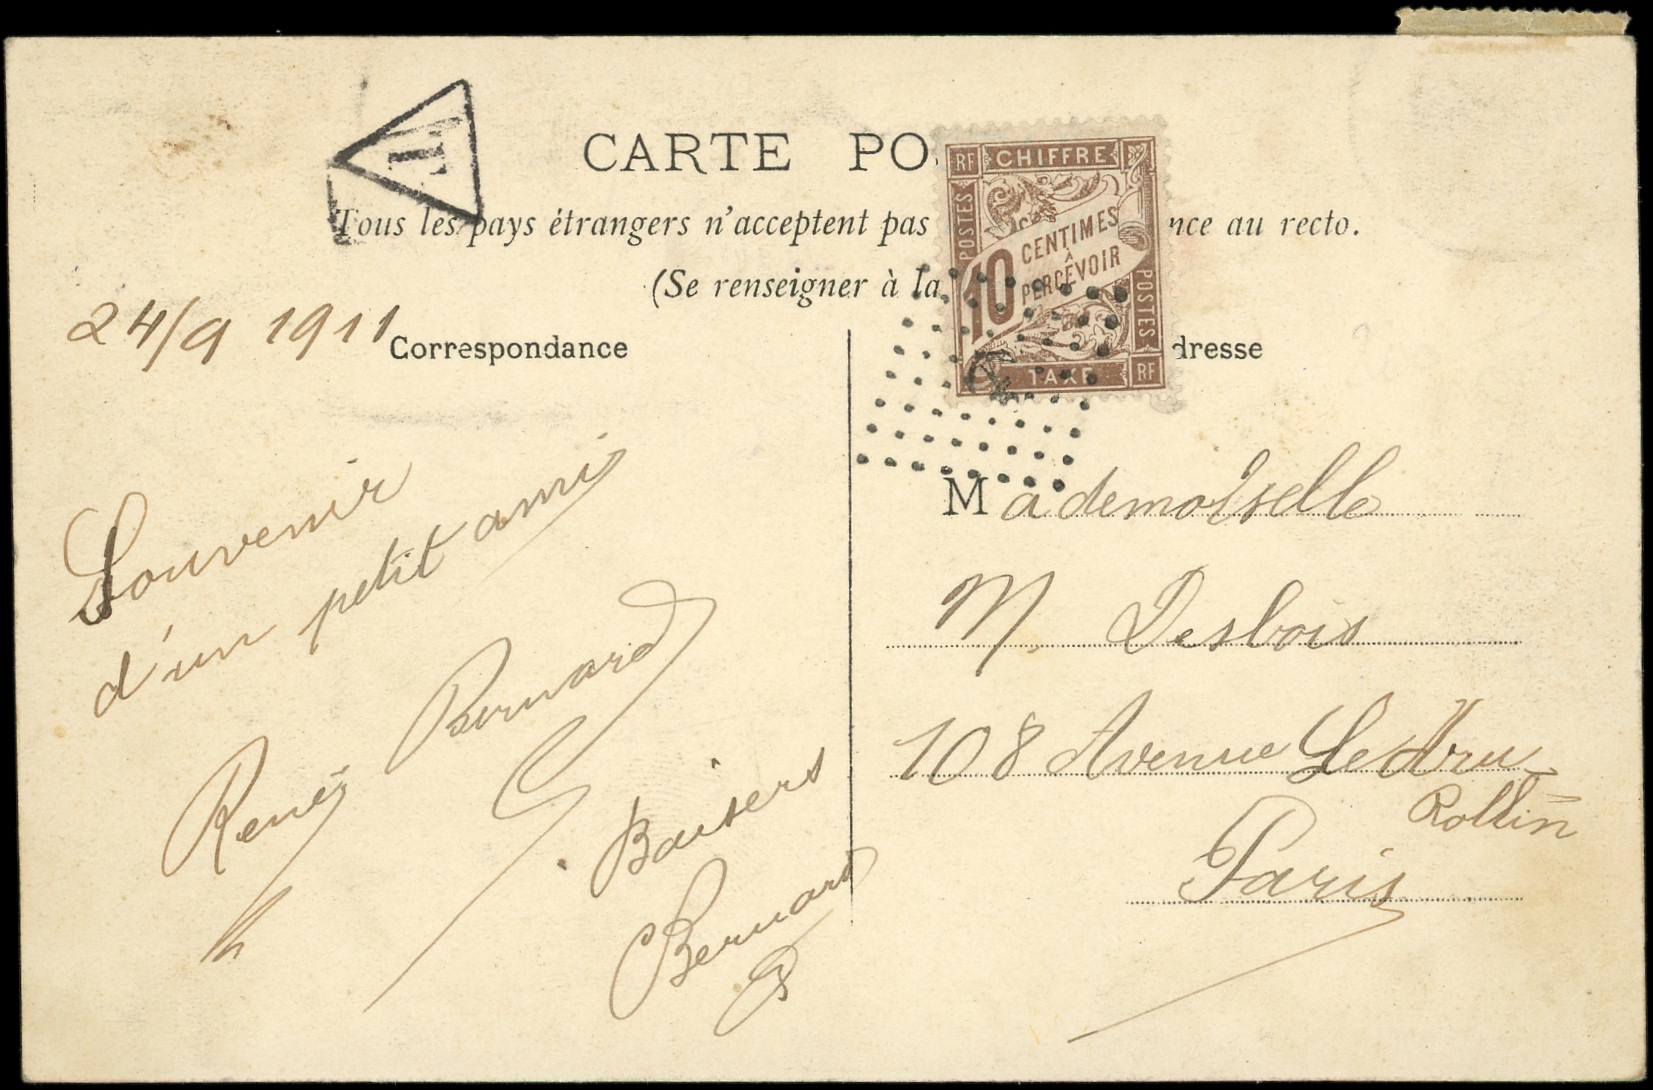 T
CARTE PO
Tous les pays étrangers n'acceptent pas nce au recto.
(Se renseigner à la
RF CHIFFRE
POSTES
10 CENTIMES
À
PERCEVOIR
POSTES
TAXE RF
24/9 1911
Correspondance
dresse
Souvenir
d'un petit ami
René Bernard
Baisers
Bernard
Mademoiselle
M. Desbois
108 Avenue Le dru
Rollin
Paris